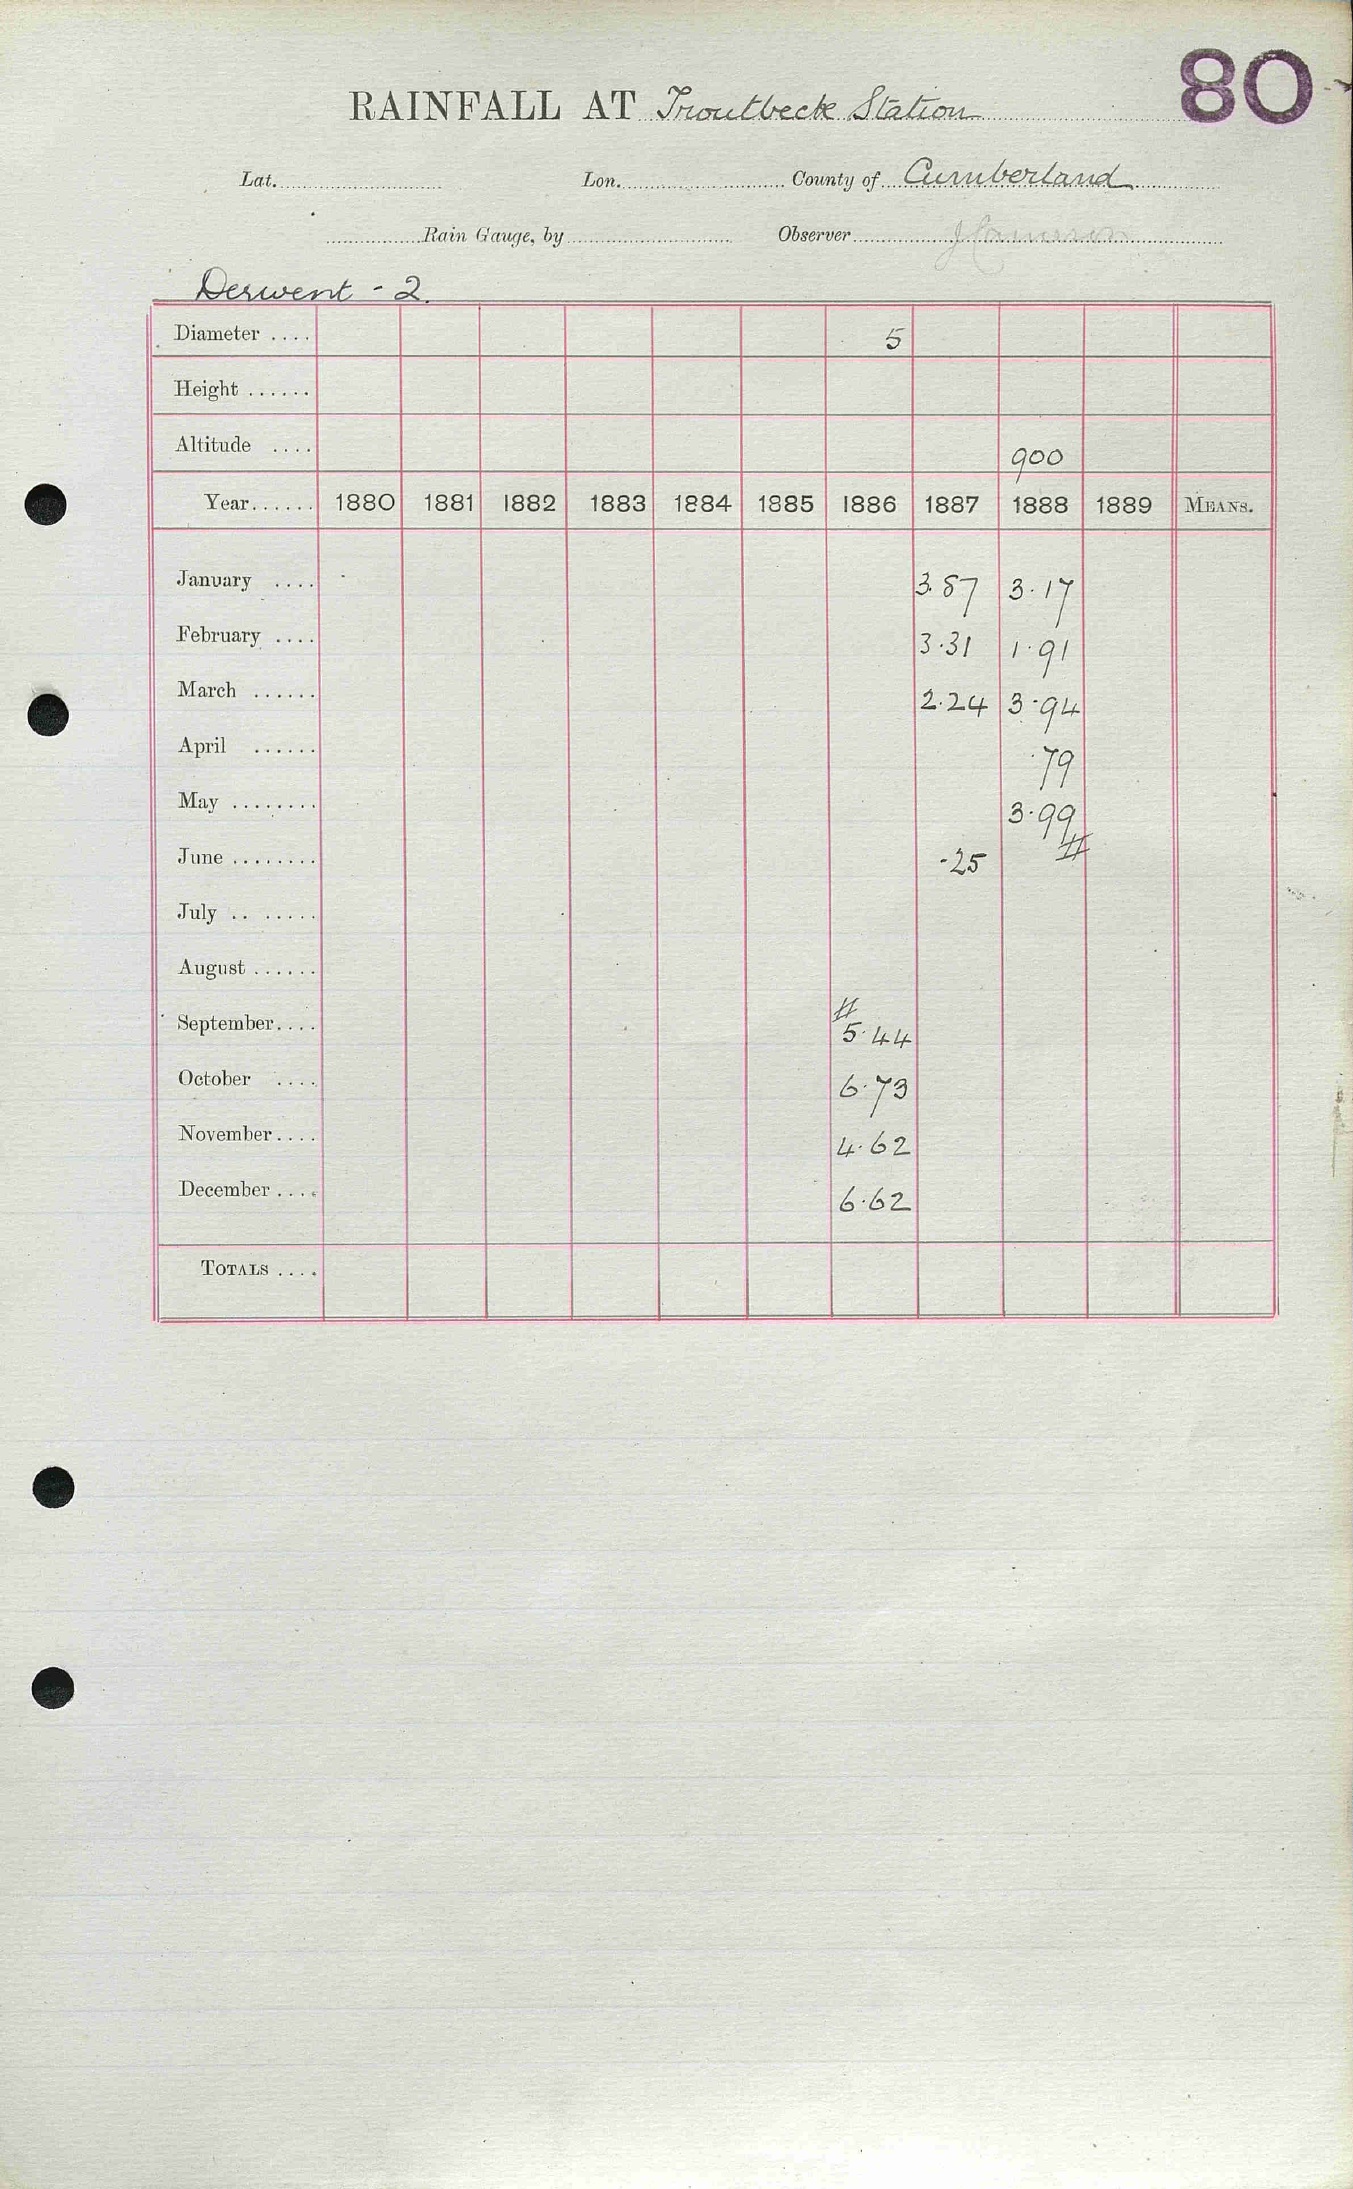 80
RAINFALL AT Troutbeck Station
Lat. Lon. County of Cumberland
Rain Gauge, by Observer J Cameron
Derwent - 2.
Diameter .... 5
Height ......
Altitude .... 900
Year...... 1880 1881 1882 1883 1884 1885 1886 1887 1888 1889 MEANS.
January .... 3.87 3.17
February .... 3.31 1.91
March ...... 2.24 3.94
April ...... .79
May ........ 3.99
June ........ .25 #
July .. .....
August ......
#
September.... 5.44
October .... 6.73
November.... 4.62
December .... 6.62
TOTALS ....